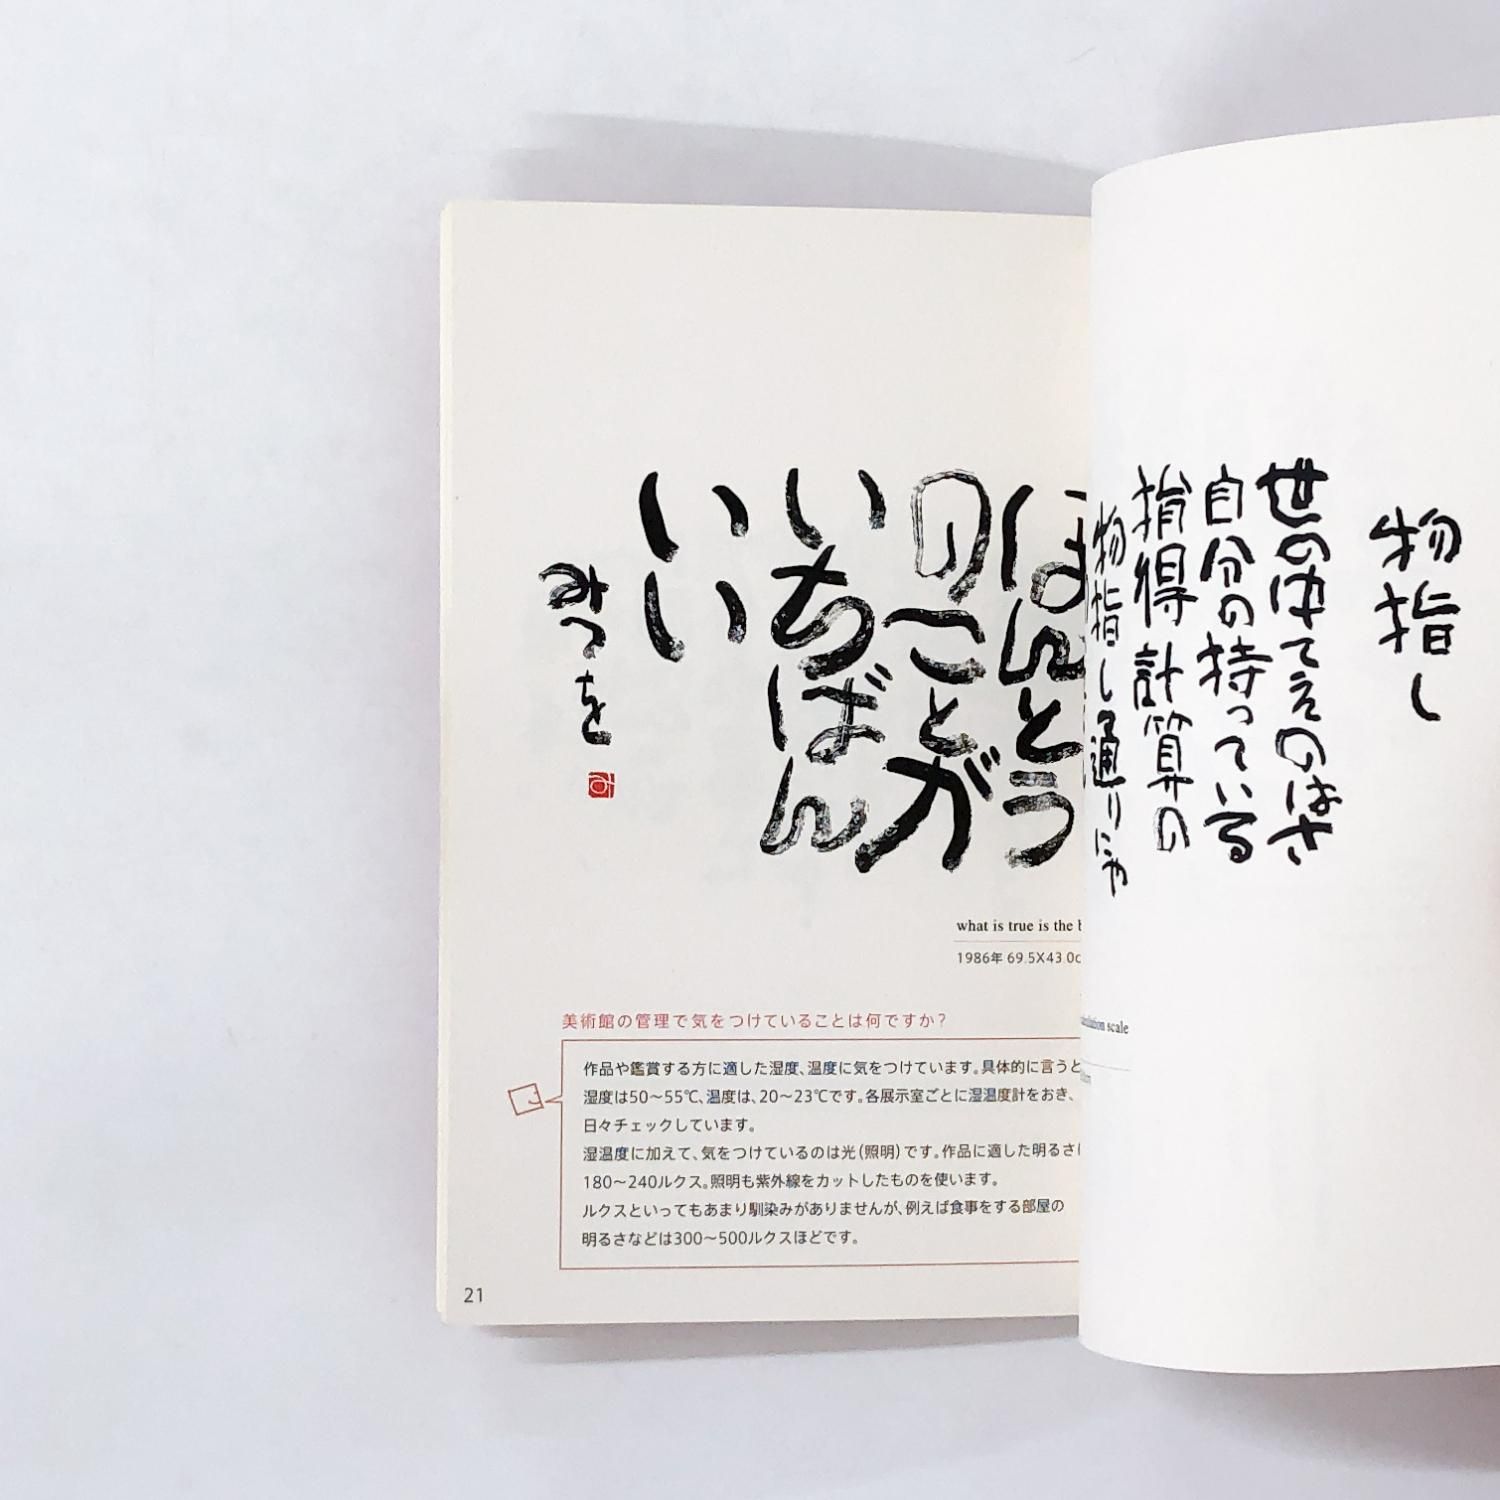 物指し
世の中てえのはさ
自分の持っている
損得計算の
物指し通りにゃ
scale
ほんとう
のことが
いちばん
いい
みつを
what is true is the
1986年 69.5X43.0c
美術館の管理で気をつけていることは何ですか?
作品や鑑賞する方に適した湿度、温度に気をつけています。具体的に言うと
湿度は50〜55℃、温度は、20〜23℃です。各展示室ごとに湿温度計をおき、
日々チェックしています。
湿温度に加えて、気をつけているのは光(照明)です。作品に適した明るさ
180〜240ルクス。照明も紫外線をカットしたものを使います。
ルクスといってもあまり馴染みがありませんが、例えば食事をする部屋の
明るさなどは300〜500ルクスほどです。
21